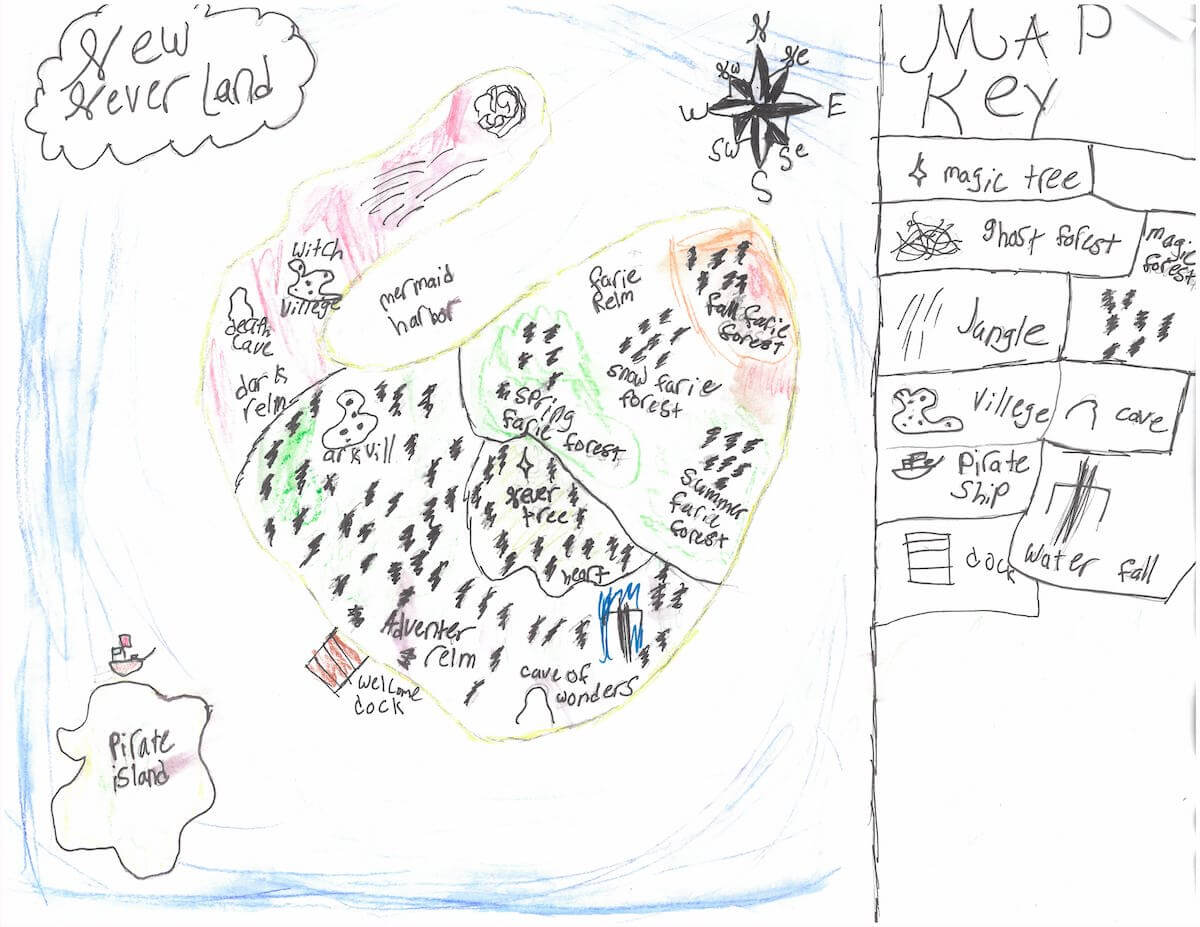 New
Never Land
N
Nw
Ne
W
E
Sw
Se
S
Witch
Villege
death
cave
dark
relm
mermaid
harbor
farie
Relm
fall farie
forest
snow farie
forest
spring
farie forest
Summer
farie
forest
arkvill
Never
tree
heart
Adventer
relm
cave of
wonders
welcome
dock
Pirate
island
MAP
Key
magic tree
ghost forest
magic
forest
Jungle
Villege
cave
Pirate
Ship
dock
water fall